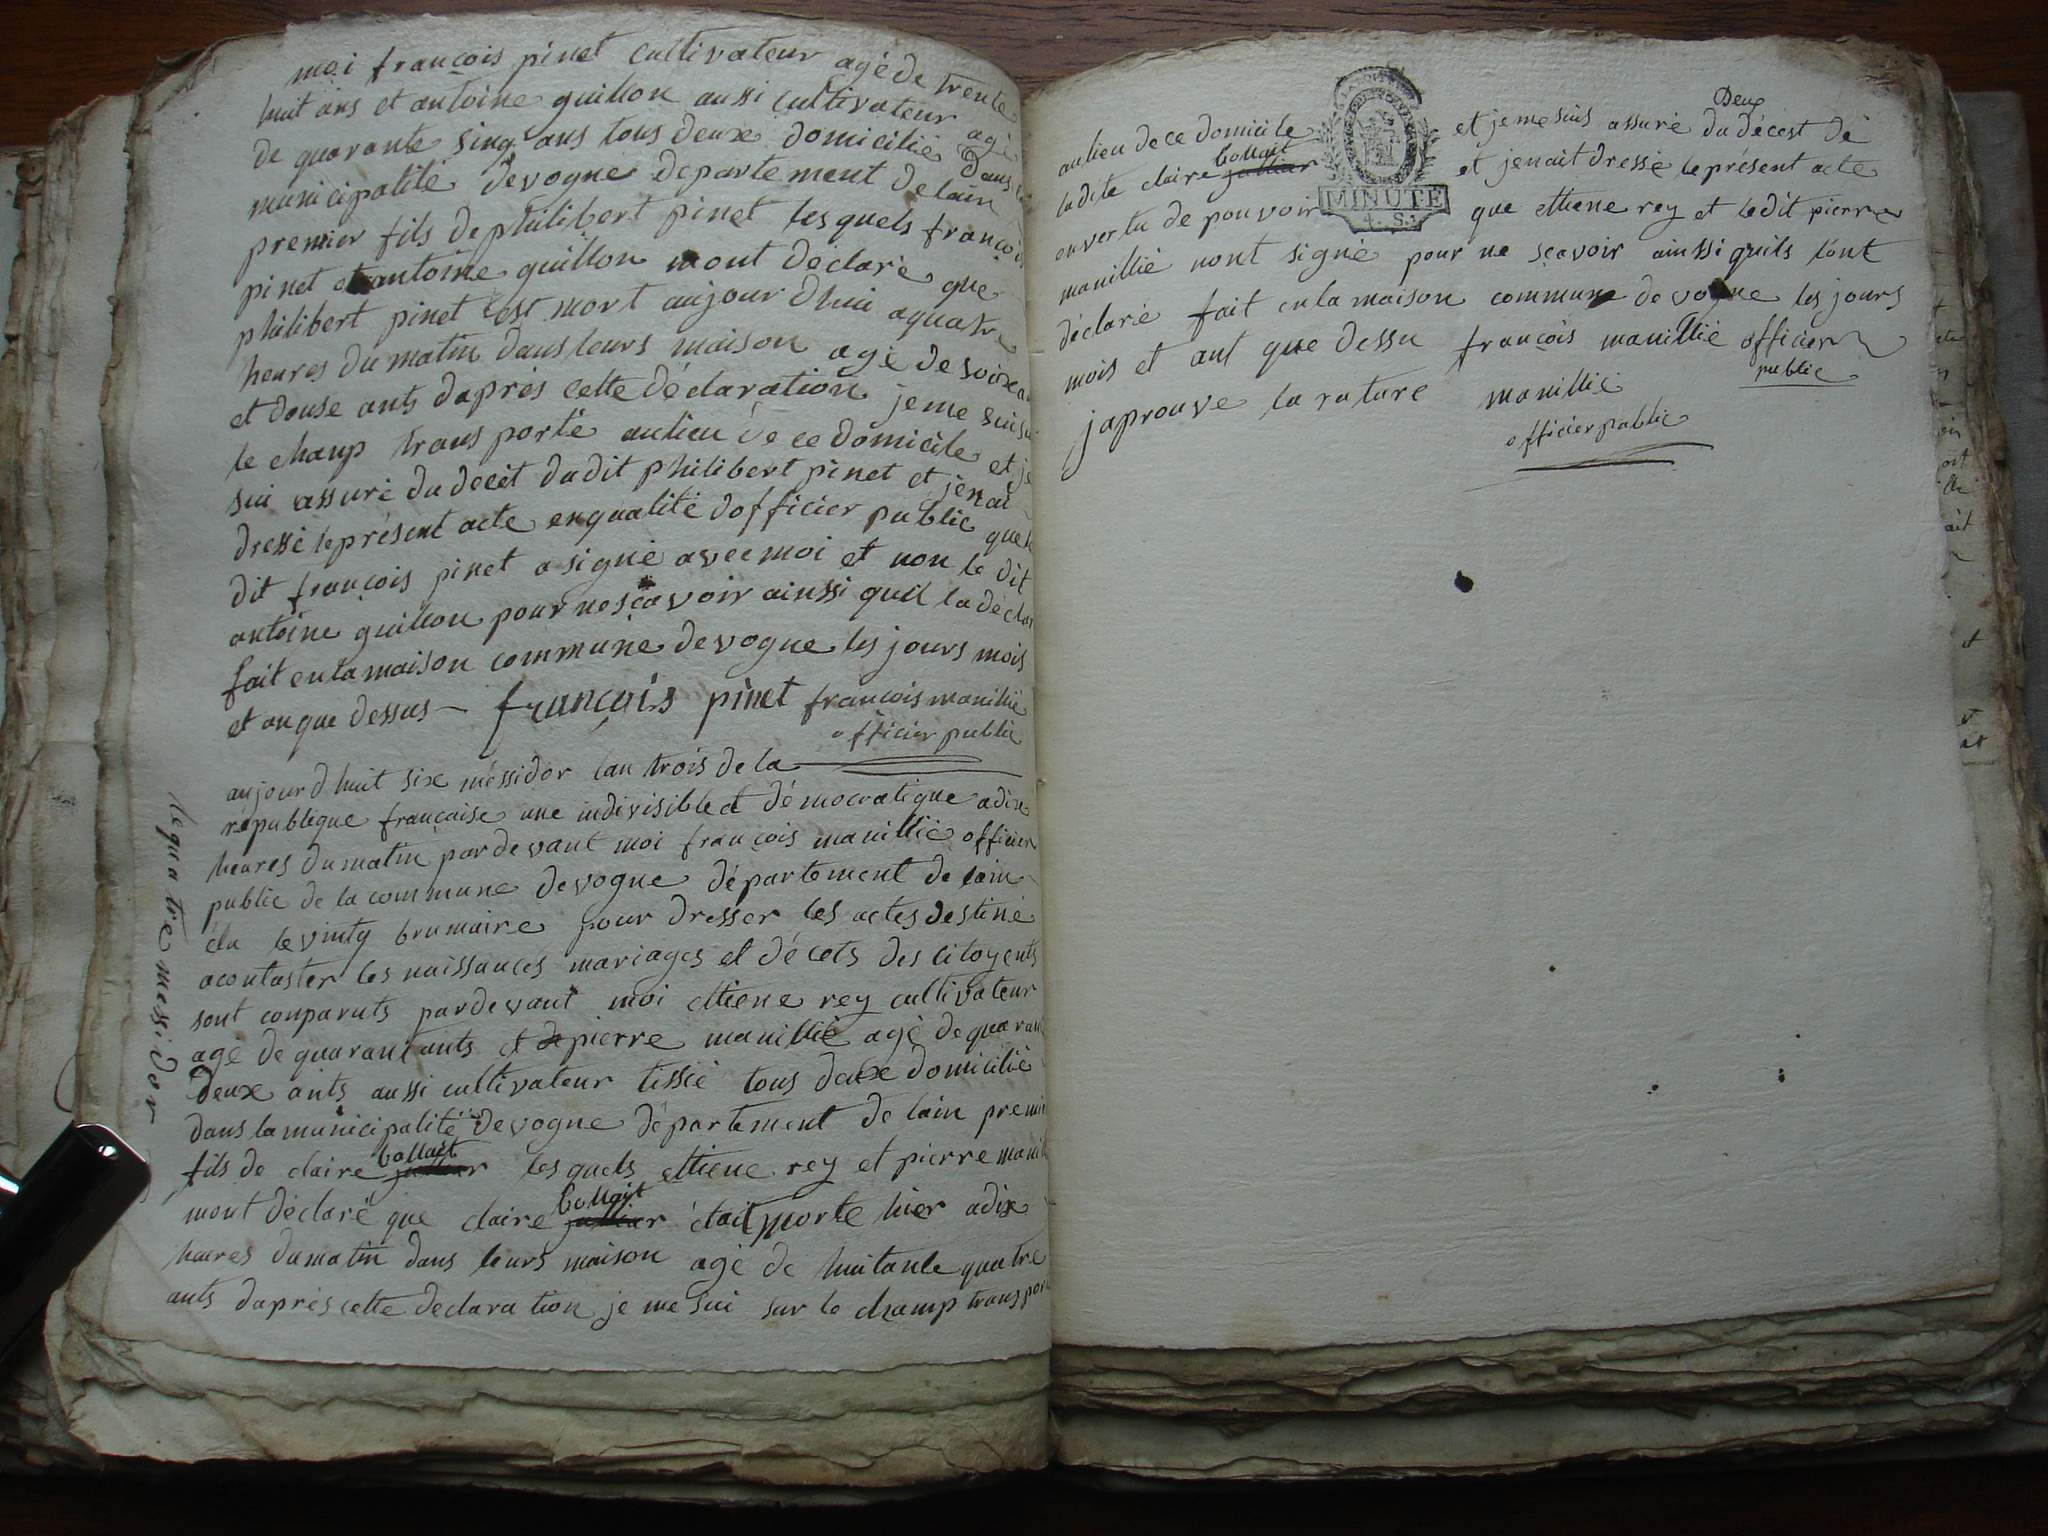 moi françois pinet cultivateur agé de trente
huit ans et antoine guillon aussi cultivateur agé
de quarante sinq ans tous deux domicilié dans
municipalité devogne departement de lain
premier fils de philibert pinet lesquels françois
pinet et antoine guillon mont declaré que
philibert pinet est mort aujourdhui aquatre
heures du matin dans leurs maison agé de soixan
et douse ants daprès cette déclaration je me suis
le champ transporté aulieu de ce domicile et je
sui assuré du decet dudit philibert pinet et jenai
dressé leprésent acte enqualité dofficier public que
dit françois pinet a signé avec moi et non le dit
antoine guillon pour nesçavoir ainssi quil la déclar
fait en la maison commune devogne les jours mois
et anque dessus françois pinet françois manillié
officier public
aujourdhuit six méssidor lan trois de la
républeque française une indivisible et démocratique adix
heures dumatin pardevant moi françois manillié officier
public de la commune devogne département de lain
élu levinty brumaire pour dresser les actes destiné
acontaster les naissances mariages et décets des citoyents
sont conparuts pardevant moi ettiene rey cultivateur
agé de quarant ants et de pierre manillié agé de quaran
deux ants aussi cultivateur tissié tous deux domicilié
dans lamunicipalité devogne département de lain premi
bollait
fils de claire julliar lesquels ettiene rey et pierre manil
bollait
mont déclaré que claire julliar était morte hier adix
heures dumatin dans leurs maison agé de huitante quatre
ants daprès cette declaration je me sui sur le champ transpor
le quatre messidor
Deux
aulieu de ce domicile et je me suis assuré du décest de
bollait
ladite claire julliar et jenait dressé leprésent acte
envertu de pouvoir que ettiene rey et ledit pierre
manillié nont signé pour ne sçavoir ainssi quils lont
déclaré fait en la maison commune de vogne les jours
mois et ant que dessu françois manillié officier
public
japrouve la rature manillié
officier public
MINUTE
4. S.